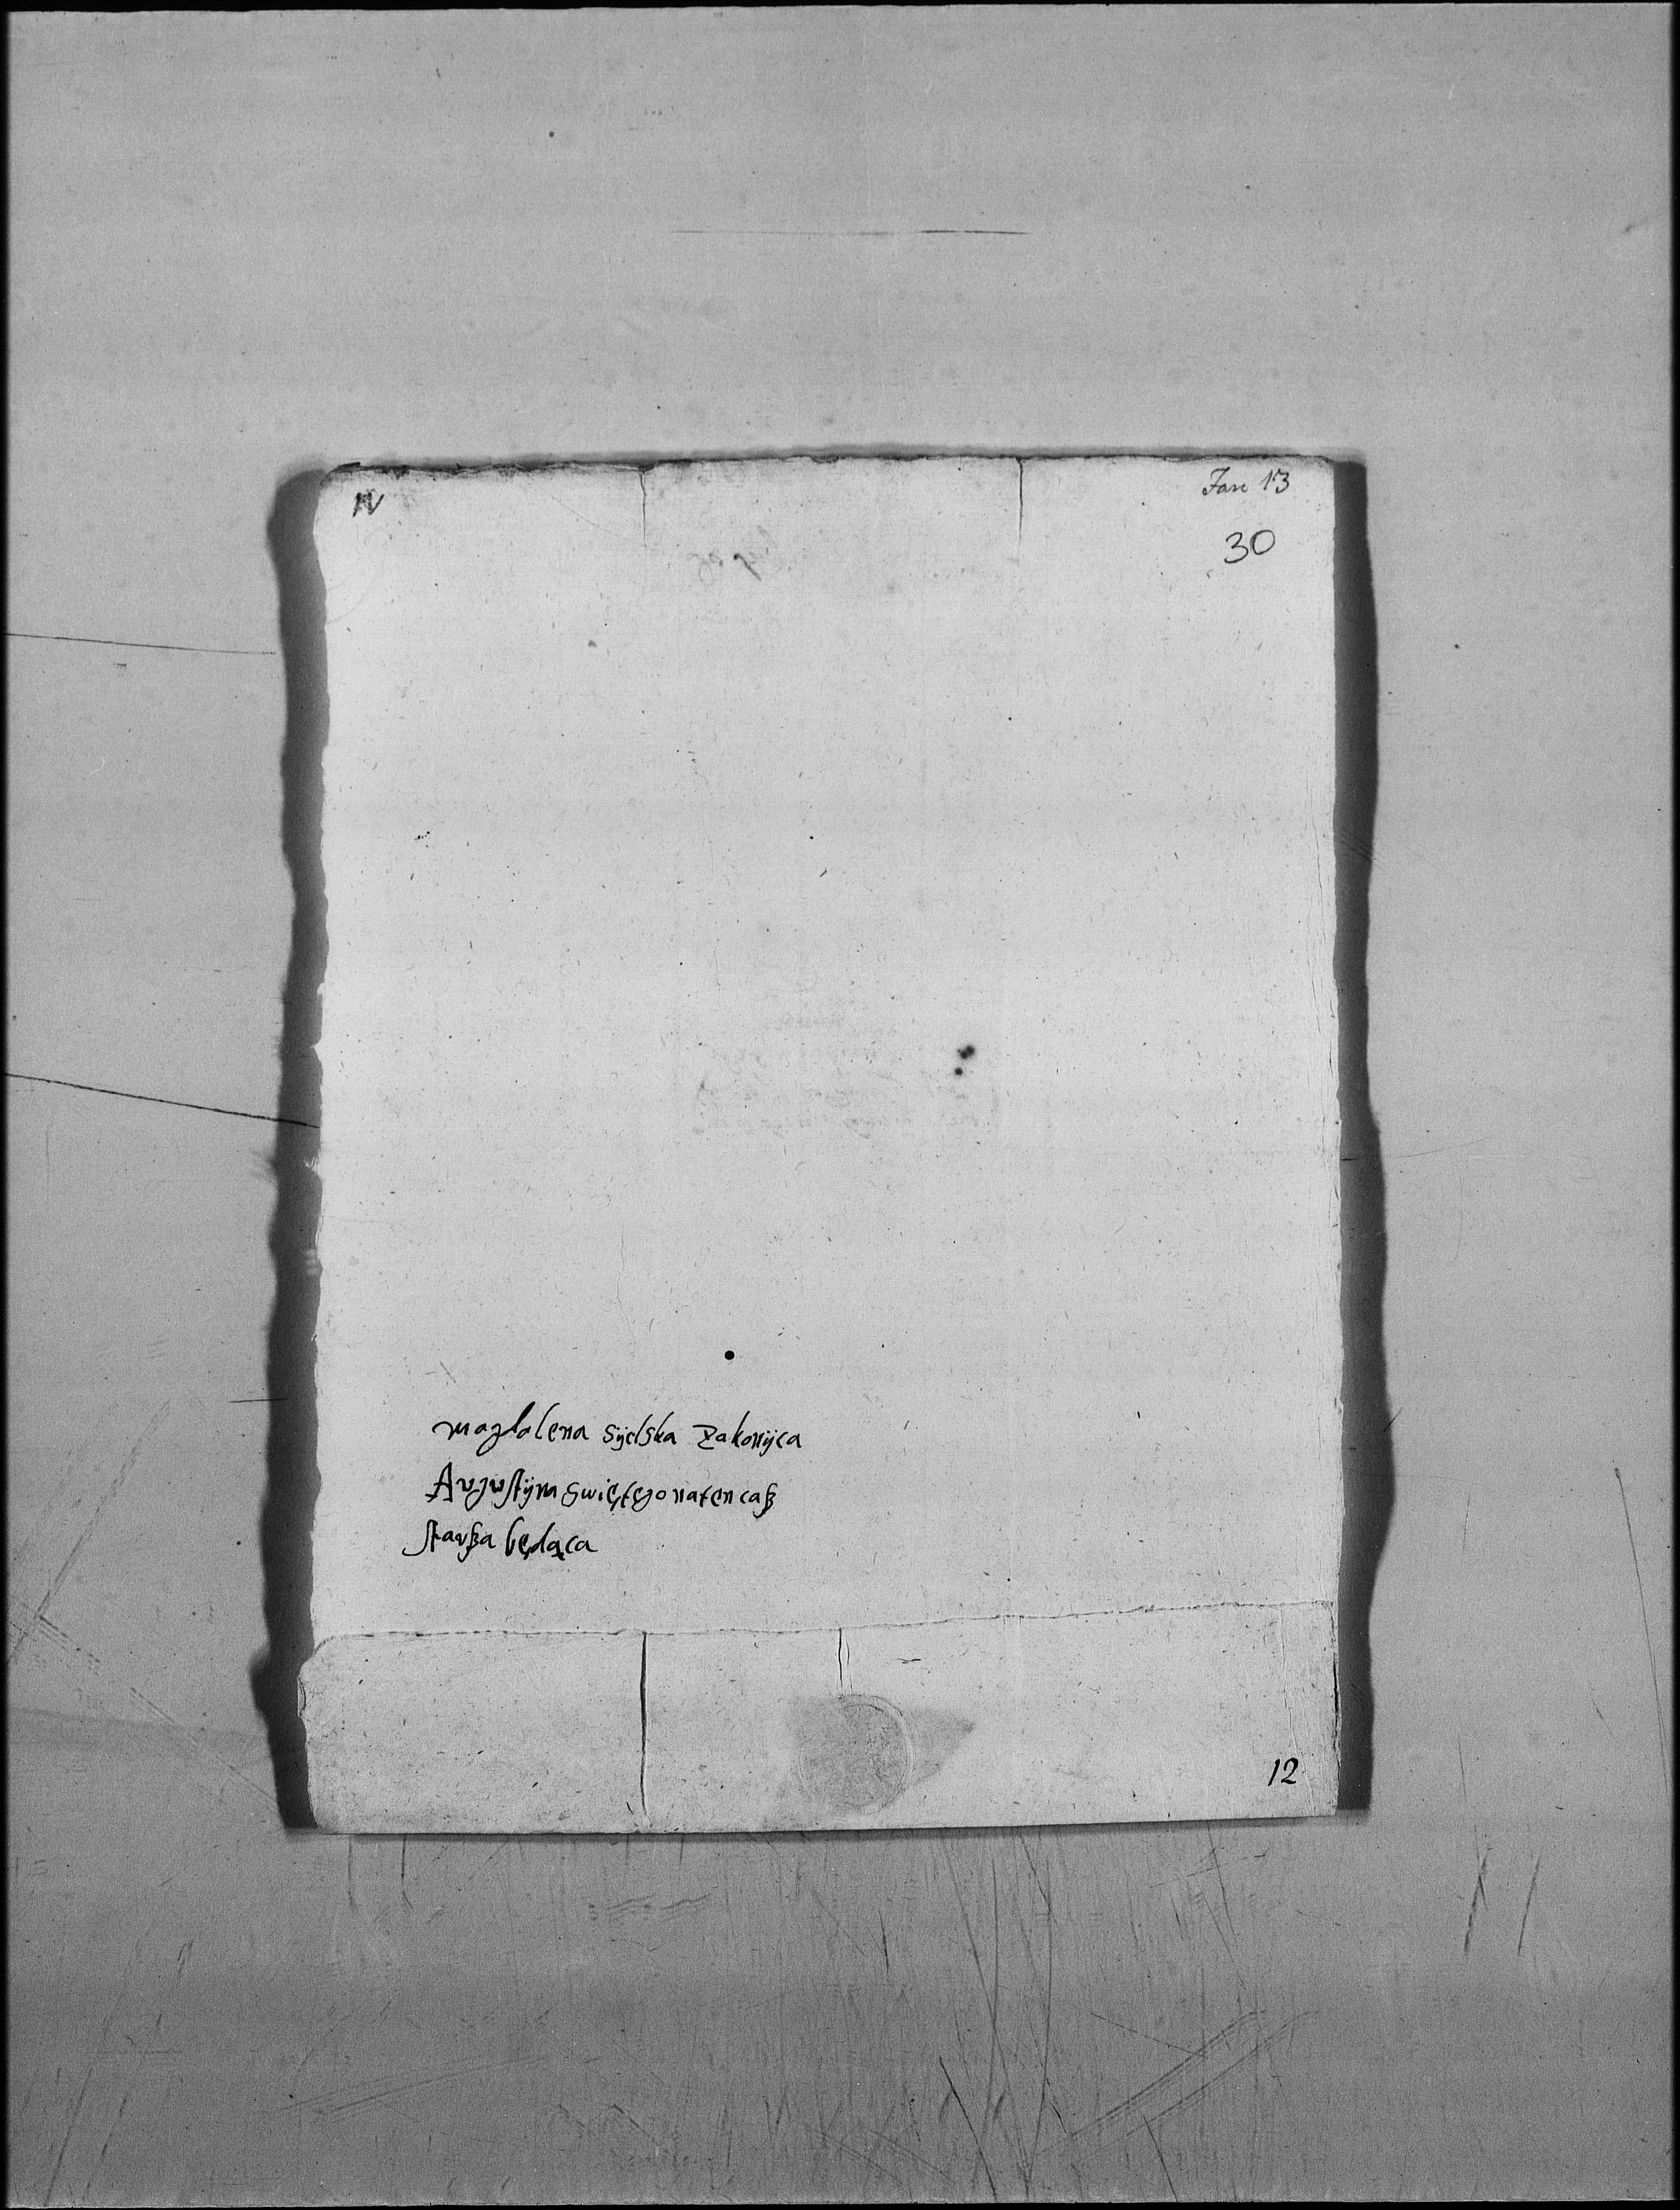 IV
Fasc 13
30
magdalena sÿelska zakonÿca
Augustÿna swiętego natencaß
starßa będąca
12